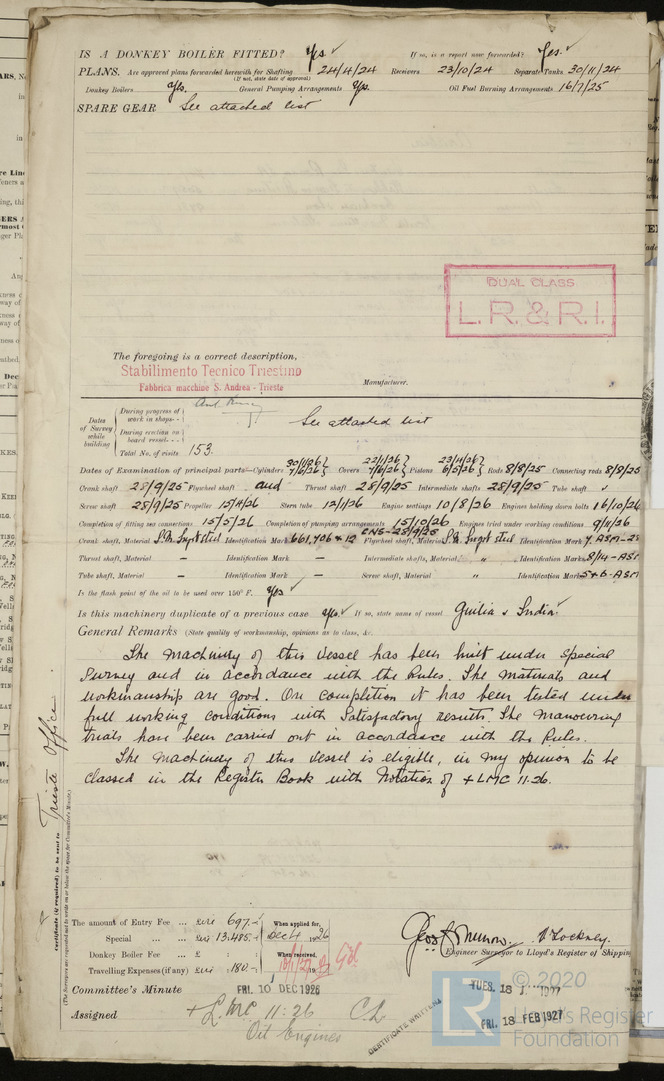 IS A DONKEY BOILER FITTED? Yes. If so, is a report now forwarded? Yes.
PLANS. Are approved plans forwarded herewith for Shafting 24/4/24 Receivers 23/10/24 Separate Tanks 30/11/24
(If not, state date of approval)
Donkey Boilers Yes. General Pumping Arrangements Yes. Oil Fuel Burning Arrangements 16/7/25
SPARE GEAR See attached list
DUAL CLASS
L.R. & R.I.
The foregoing is a correct description,
Stabilimento Tecnico Triestino
Fabbrica macchine S. Andrea - Trieste
Manufacturer.
Dates of Survey while building
During progress of work in shops - -
During erection on board vessel - - -
See attached list
Total No. of visits 153.
Dates of Examination of principal parts—Cylinders 30/1/26 7/6/26 Covers 22/1/26 7/6/26 Pistons 23/4/26 6/5/26 Rods 8/8/25 Connecting rods 8/8/25
Crank shaft 28/9/25 Flywheel shaft and Thrust shaft 28/9/25 Intermediate shafts 28/9/25 Tube shaft "
Screw shaft 28/9/25 Propeller 15/4/26 Stern tube 12/1/26 Engine seatings 10/8/26 Engines holding down bolts 16/10/26
Completion of fitting sea connections 15/5/26 Completion of pumping arrangements 15/10/26 Engines tried under working conditions 9/11/26
Crank shaft, Material S.M. Ingot steel Identification Mark 661,706 & 12 CNS-28/9/25 Flywheel shaft, Material S.M. Ingot steel Identification Mark 7 ASM-28
Thrust shaft, Material – Identification Mark – Intermediate shafts, Material " Identification Marks 8/14-ASM
Tube shaft, Material – Identification Mark – Screw shaft, Material " Identification Mark 5+6-ASM
Is the flash point of the oil to be used over 150° F. Yes
Is this machinery duplicate of a previous case Yes. If so, state name of vessel Giulia & India
General Remarks (State quality of workmanship, opinions as to class, &c.
The machinery of this vessel has been built under special
survey and in accordance with the Rules. The materials and
workmanship are good. On completion it has been tested under
full working conditions with satisfactory results. The manouvring
trials have been carried out in accordance with the Rules.
The machinery of this vessel is eligible, in my opinion to be
classed in the Register Book with Notation of + LMC 11.26.
Certificate (if required) to be sent to Trieste Office.
(The Surveyors are requested not to write on or below the space for Committee's Minute.)
The amount of Entry Fee ... Lire 697.- When applied for,
Special ... Lire 13.485.- Dec 4 1926
Donkey Boiler Fee ... £ : : When received,
Travelling Expenses (if any) Lire 180.-
Engineer Surveyor to Lloyd's Register of Shipping
Committee's Minute FRI. 10 DEC 1926
FRI. 18 FEB 1927
Assigned + L.M.C. 11.26 C.L.
Oil Engines
CERTIFICATE WRITTEN
LR
© 2020
Lloyd's Register
Foundation